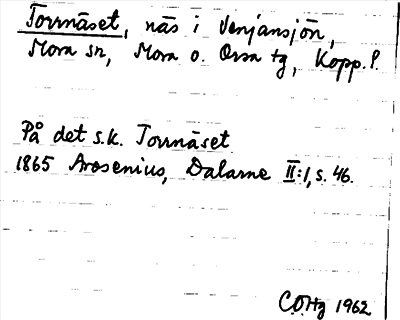 Torrnäset, näs i Venjansjön,
Mora sn, Mora o. Orsa tg, Kopp. l.
På det s.k. Torrnäset.
1865 Arosenius, Dalarne II:1, s. 46.
COHg 1962